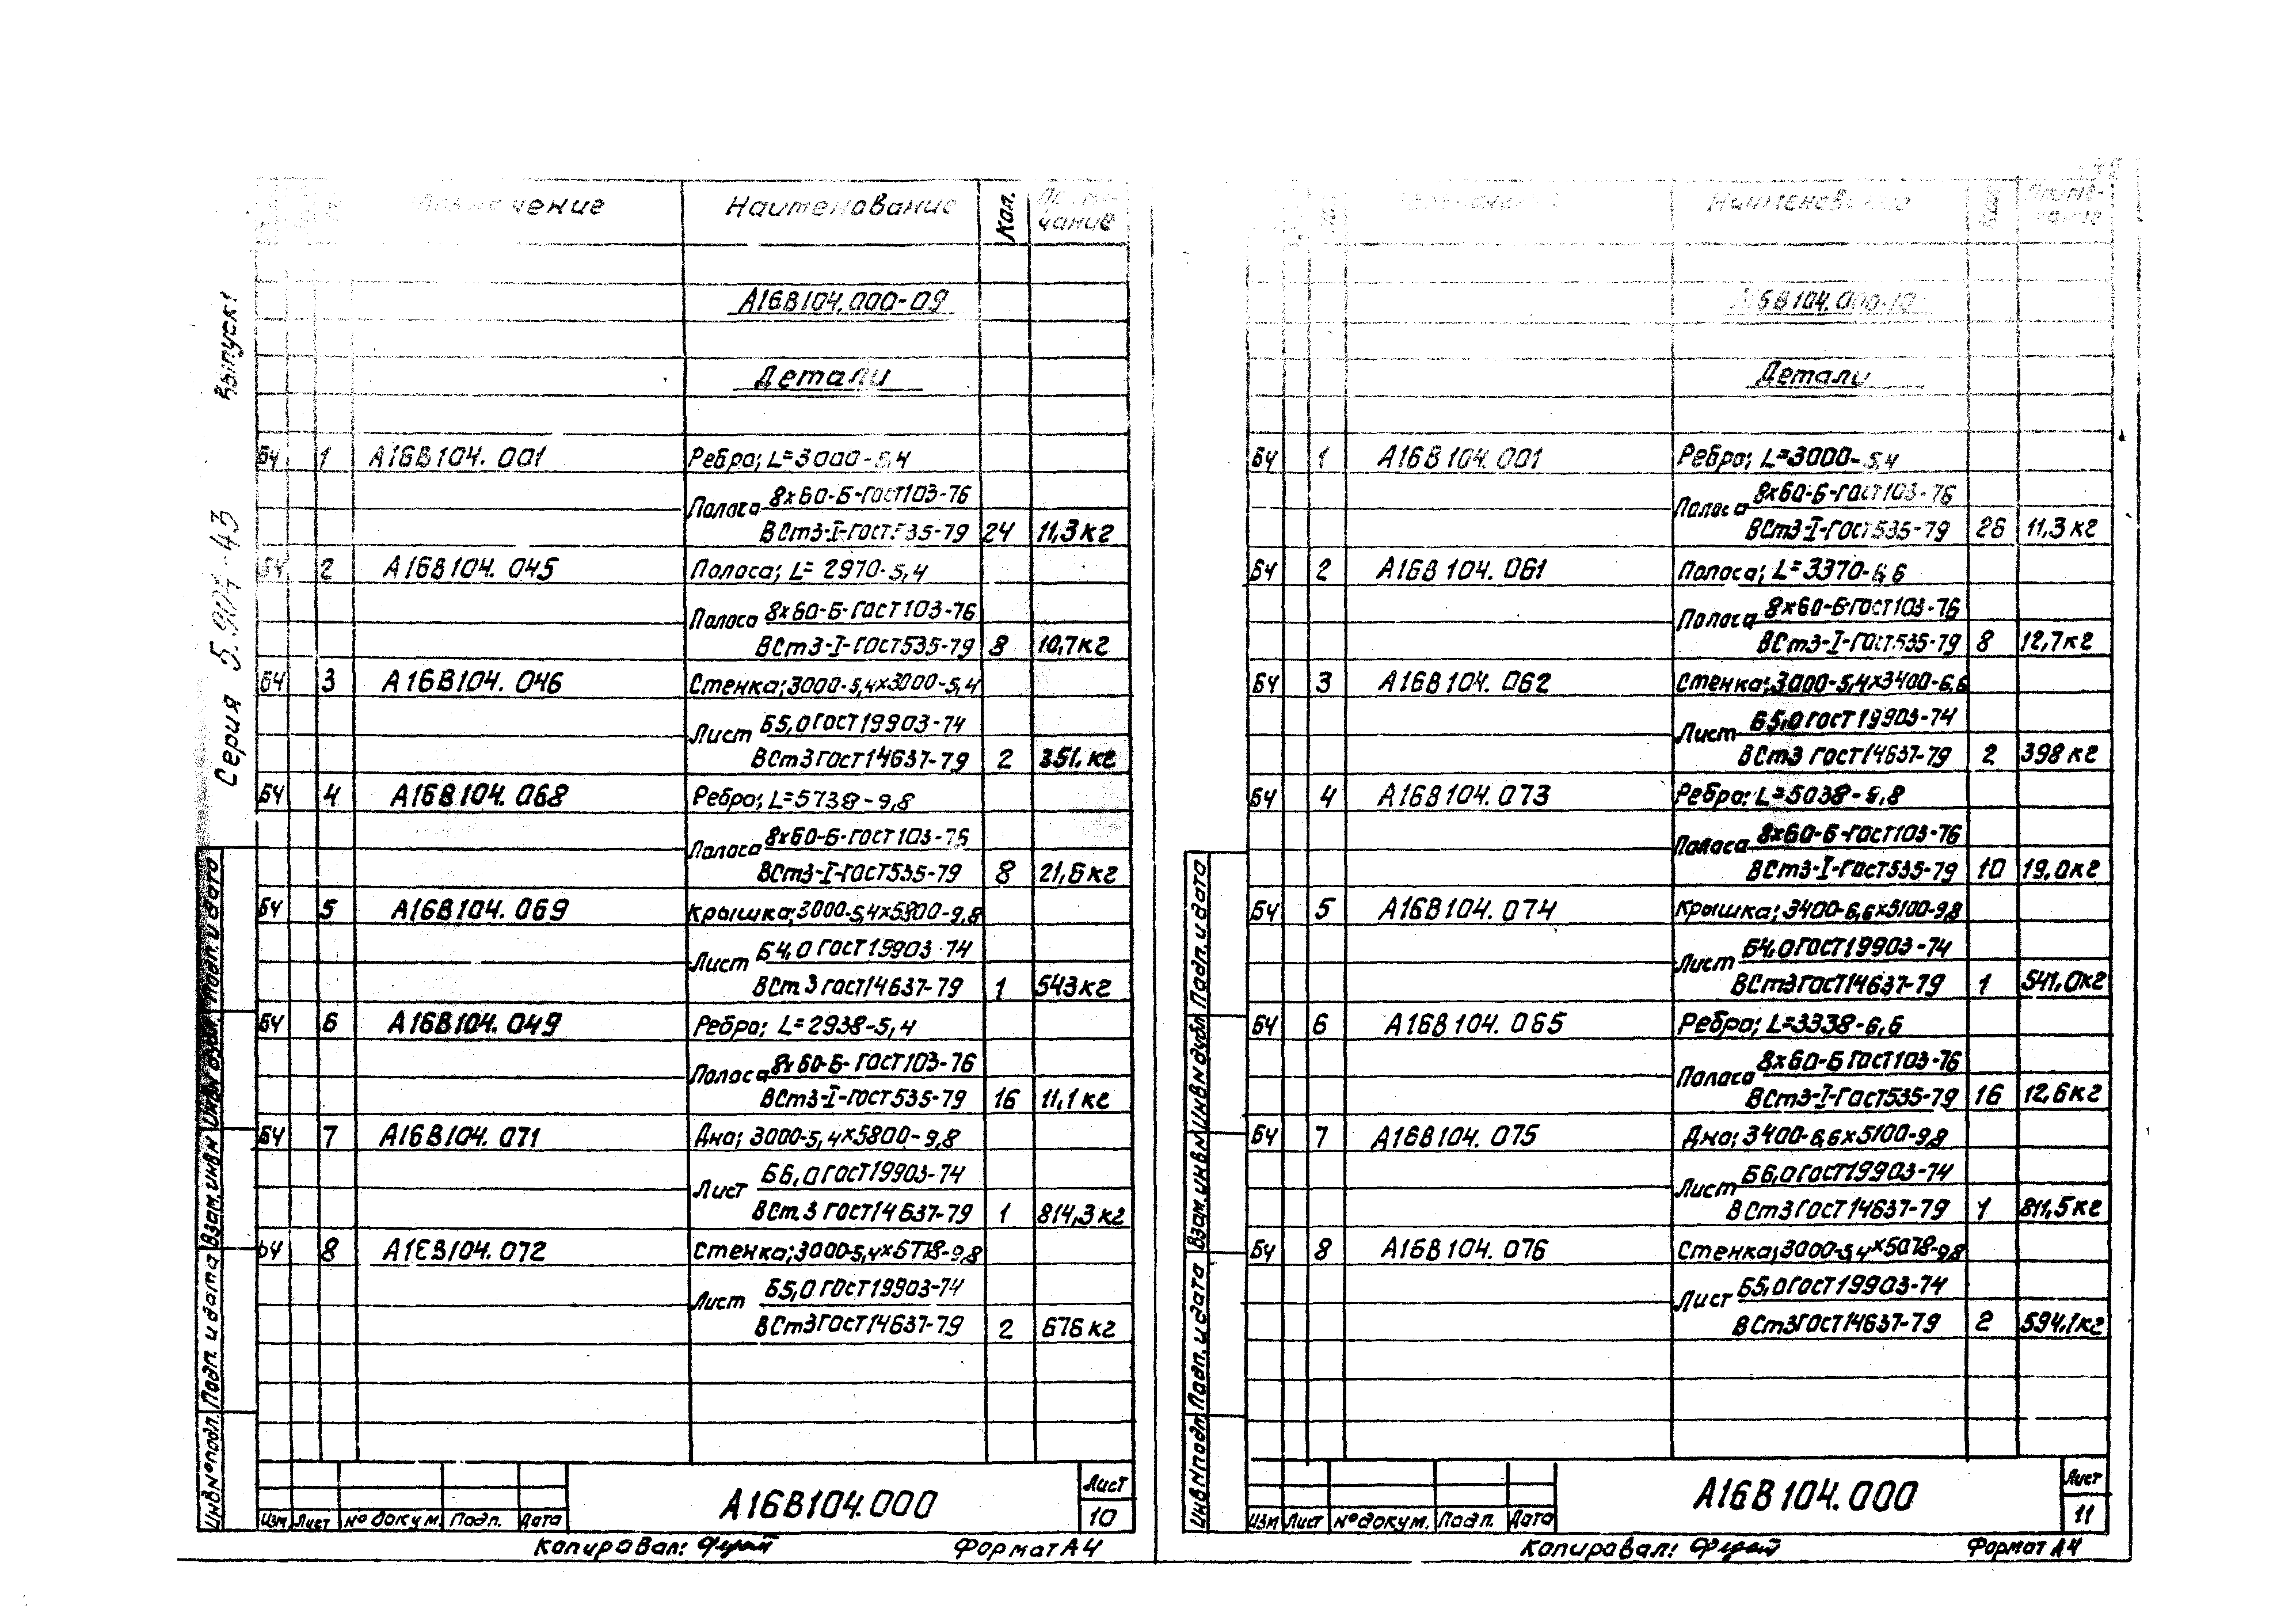 Наименование Кол.
чание
А16В104.000-09
Детали
БЧ 1 А16В104.001 Ребро; L=3000-5,4
Полоса 8х60-Б-ГОСТ103-76
ВСт3-I-ГОСТ535-79 24 11,3кг
БЧ 2 А16В104.045 Полоса; L=2970-5,4
Полоса 8х60-Б-ГОСТ103-76
ВСт3-I-ГОСТ535-79 8 10,7кг
БЧ 3 А16В104.046 Стенка;3000-5,4х3000-5,4
Лист Б5,0ГОСТ19903-74
ВСт3ГОСТ14637-79 2 351.кг
БЧ 4 А16В104.068 Ребро; L=5738-9,8
Полоса 8х60-Б-ГОСТ103-76
ВСт3-I-ГОСТ535-79 8 21,6кг
БЧ 5 А16В104.069 Крышка;3000-5,4х5800-9,8
Лист Б4,0 ГОСТ19903-74
ВСт.3 ГОСТ14637-79 1 543кг
БЧ 6 А16В104.049 Ребро; L=2938-5,4
Полоса 8х60-Б-ГОСТ103-76
ВСт3-I-ГОСТ535-79 16 11,1кг
БЧ 7 А16В104.071 Дно; 3000-5,4х5800-9,8
Лист Б6,0ГОСТ19903-74
ВСт.3 ГОСТ14637-79 1 814,3кг
БЧ 8 А16В104.072 Стенка;3000-5,4х5778-9,8
Лист Б5,0ГОСТ19903-74
ВСт3ГОСТ14637-79 2 676кг
Серия 5.904-43 Выпуск1
Инв№подл. Подп. и дата Взам.инв№ Инв№дубл. Подп. и дата
Изм Лист №докум. Подп. Дата
А16В104.000
Лист
10
Копировал: Формат А4
Наименование
А16В104.000-10
Детали
БЧ 1 А16В104.001 Ребро; L=3000-5,4
Полоса 8х60-Б-ГОСТ103-76
ВСт3-I-ГОСТ535-79 26 11,3кг
БЧ 2 А16В104.061 Полоса; L=3370-6,6
Полоса 8х60-Б-ГОСТ103-76
ВСт3-I-ГОСТ535-79 8 12,7кг
БЧ 3 А16В104.062 Стенка;3000-5,4х3400-6,6
Лист Б5,0ГОСТ19903-74
ВСт3 ГОСТ14637-79 2 398кг
БЧ 4 А16В104.073 Ребро; L=5038-9,8
Полоса 8х60-Б-ГОСТ103-76
ВСт3-I-ГОСТ535-79 10 19,0кг
БЧ 5 А16В104.074 Крышка;3400-6,6х5100-9,8
Лист Б4,0ГОСТ19903-74
ВСт3ГОСТ14637-79 1 541,0кг
БЧ 6 А16В104.065 Ребро; L=3338-6,6
Полоса 8х60-Б ГОСТ103-76
ВСт3-I-ГОСТ535-79 16 12,6кг
БЧ 7 А16В104.075 Дно;3400-6,6х5100-9,8
Лист Б6,0ГОСТ19903-74
ВСт3ГОСТ14637-79 1 811,5кг
БЧ 8 А16В104.076 Стенка;3000-5,4х5078-9,8
Лист Б5,0ГОСТ19903-74
ВСт3ГОСТ14637-79 2 594,1кг
Инв№подл. Подп. и дата Взам.инв№ Инв№дубл. Подп. и дата
Изм Лист №докум. Подп. Дата
А16В104.000
Лист
11
Копировал: Формат А4